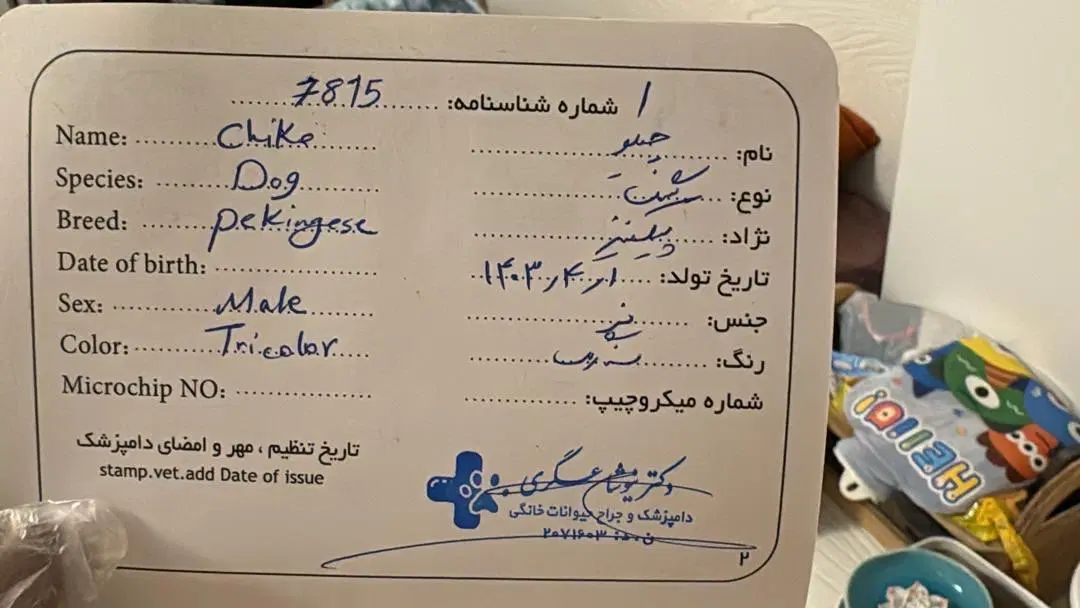 شماره شناسنامه: 7815
Name: Chike
نام:
Species: Dog
نوع:
Breed: Pekingese
نژاد: پکینیز
Date of birth:
تاریخ تولد: ۱۴۰۳/۴/۱
Sex: Male
جنس: نر
Color: Tricolor
رنگ:
Microchip NO:
شماره میکروچیپ:
تاریخ تنظیم ، مهر و امضای دامپزشک
stamp.vet.add Date of issue
دکتر عسگری
دامپزشک و جراح حیوانات خانگی
۲۰۷۱۶۰۳
۲
Hello!